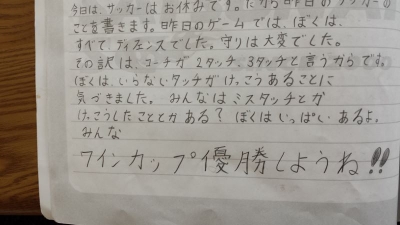 今日は、サッカーはお休みです。だから昨日のサッカーの
ことを書きます。昨日のゲームでは、ぼくは、
すべて、ディフェンスでした。守りは大変でした。
その訳は、コーチが2タッチ、3タッチと言うからです。
ぼくは、いらないタッチがけっこうあることに
気づきました。みんなはミスタッチとか
けっこうしたこととかある?ぼくはいっぱいあるよ。
みんな
ワインカップ優勝しようね!!